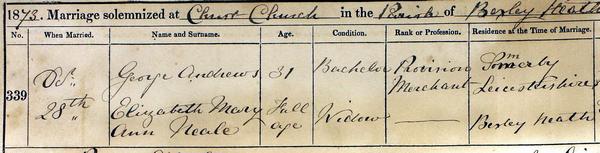 1873. Marriage solemnized at Christ Church in the Parish of Bexley Heath
No. When Married. Name and Surname. Age. Condition. Rank or Profession. Residence at the Time of Marriage.
339
George Andrews 31 Bachelor Provision Merchant Somerby Leicestershire
28th Elizabeth Mary Ann Neale Full age Widow — Bexley Heath